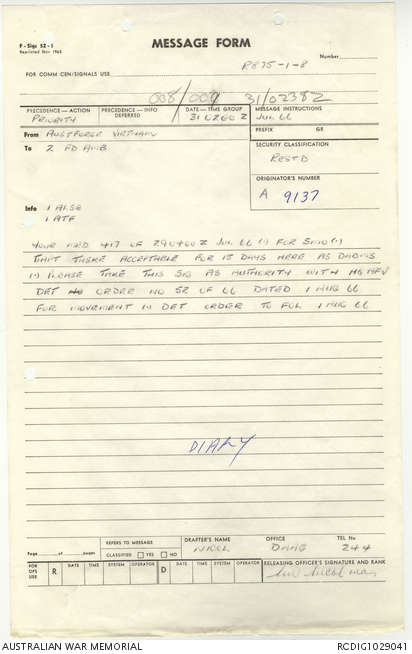 F - Sigs 52 - 1
Reprinted Nov 1965
MESSAGE FORM
Number
R875-1-8
FOR COMM CEN/SIGNALS USE
008/009 31/0238Z
PRECEDENCE — ACTION
PRIORITY
PRECEDENCE — INFO
DEFERRED
DATE — TIME GROUP
310200Z
MESSAGE INSTRUCTIONS
JUL 66
From AUSTFORCE VIETNAM
PREFIX GR
To 2 FD AMB
SECURITY CLASSIFICATION
RESTD
ORIGINATOR'S NUMBER
A 9137
Info 1 ALSG
1 ATF
YOUR MED 417 OF 290400Z JUL 66 (.) FOR SMO (.)
THAT ACCEPTABLE FOR 15 DAYS HERE AS
(.) PLEASE TAKE THIS SIG AS AUTHORITY WITH HQ AFV
DET ORDER NO 52 OF 66 DATED 1 AUG 66
FOR MOVEMENT (.) DET ORDER TO FOL 1 AUG 66
DIARY
Page of pages
REFERS TO MESSAGE
CLASSIFIED YES NO
DRAFTER'S NAME
OFFICE
TEL No
244
FOR OPS USE
R DATE TIME SYSTEM OPERATOR D DATE TIME SYSTEM OPERATOR
RELEASING OFFICER'S SIGNATURE AND RANK
AUSTRALIAN WAR MEMORIAL
RCDIG1029041